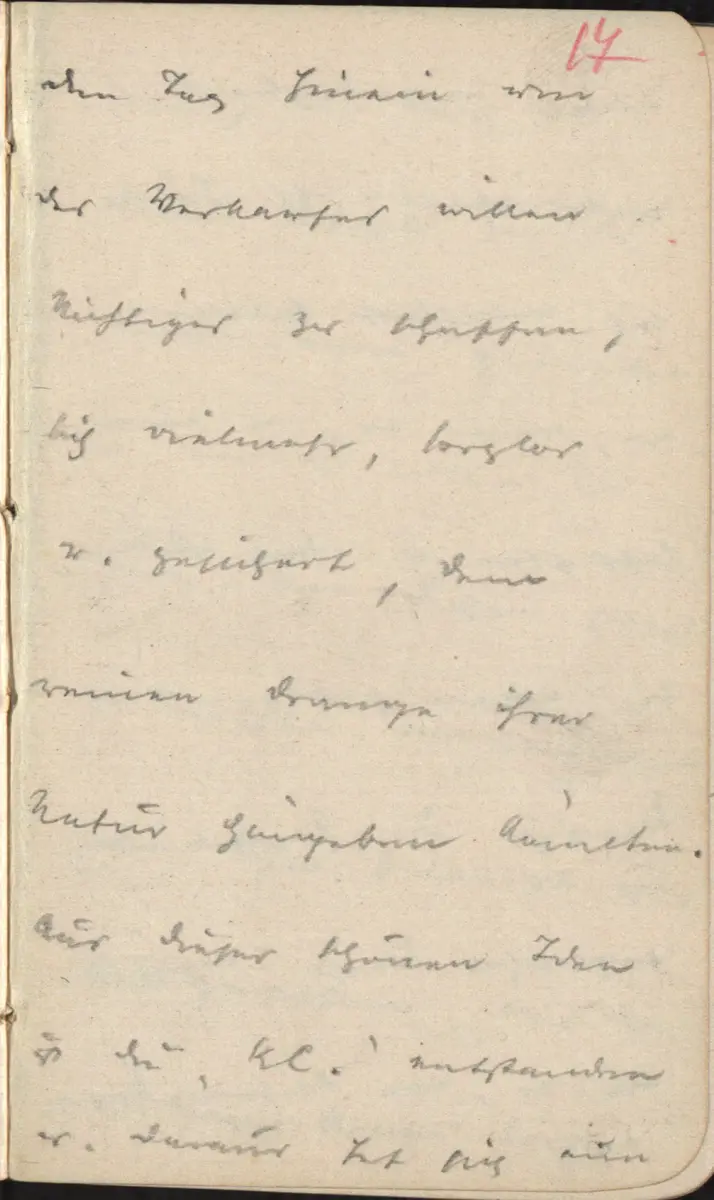 17
den Tag hinein um
des Verkaufes willen
Nichtiges zu schaffen,
sich vielmehr, sorglos
u. gesichert, dem
reinen Drange ihrer
Natur hingeben könnten.
Aus dieser schönen Idee
ist die "KC." entstanden
u. daraus hat sich nun